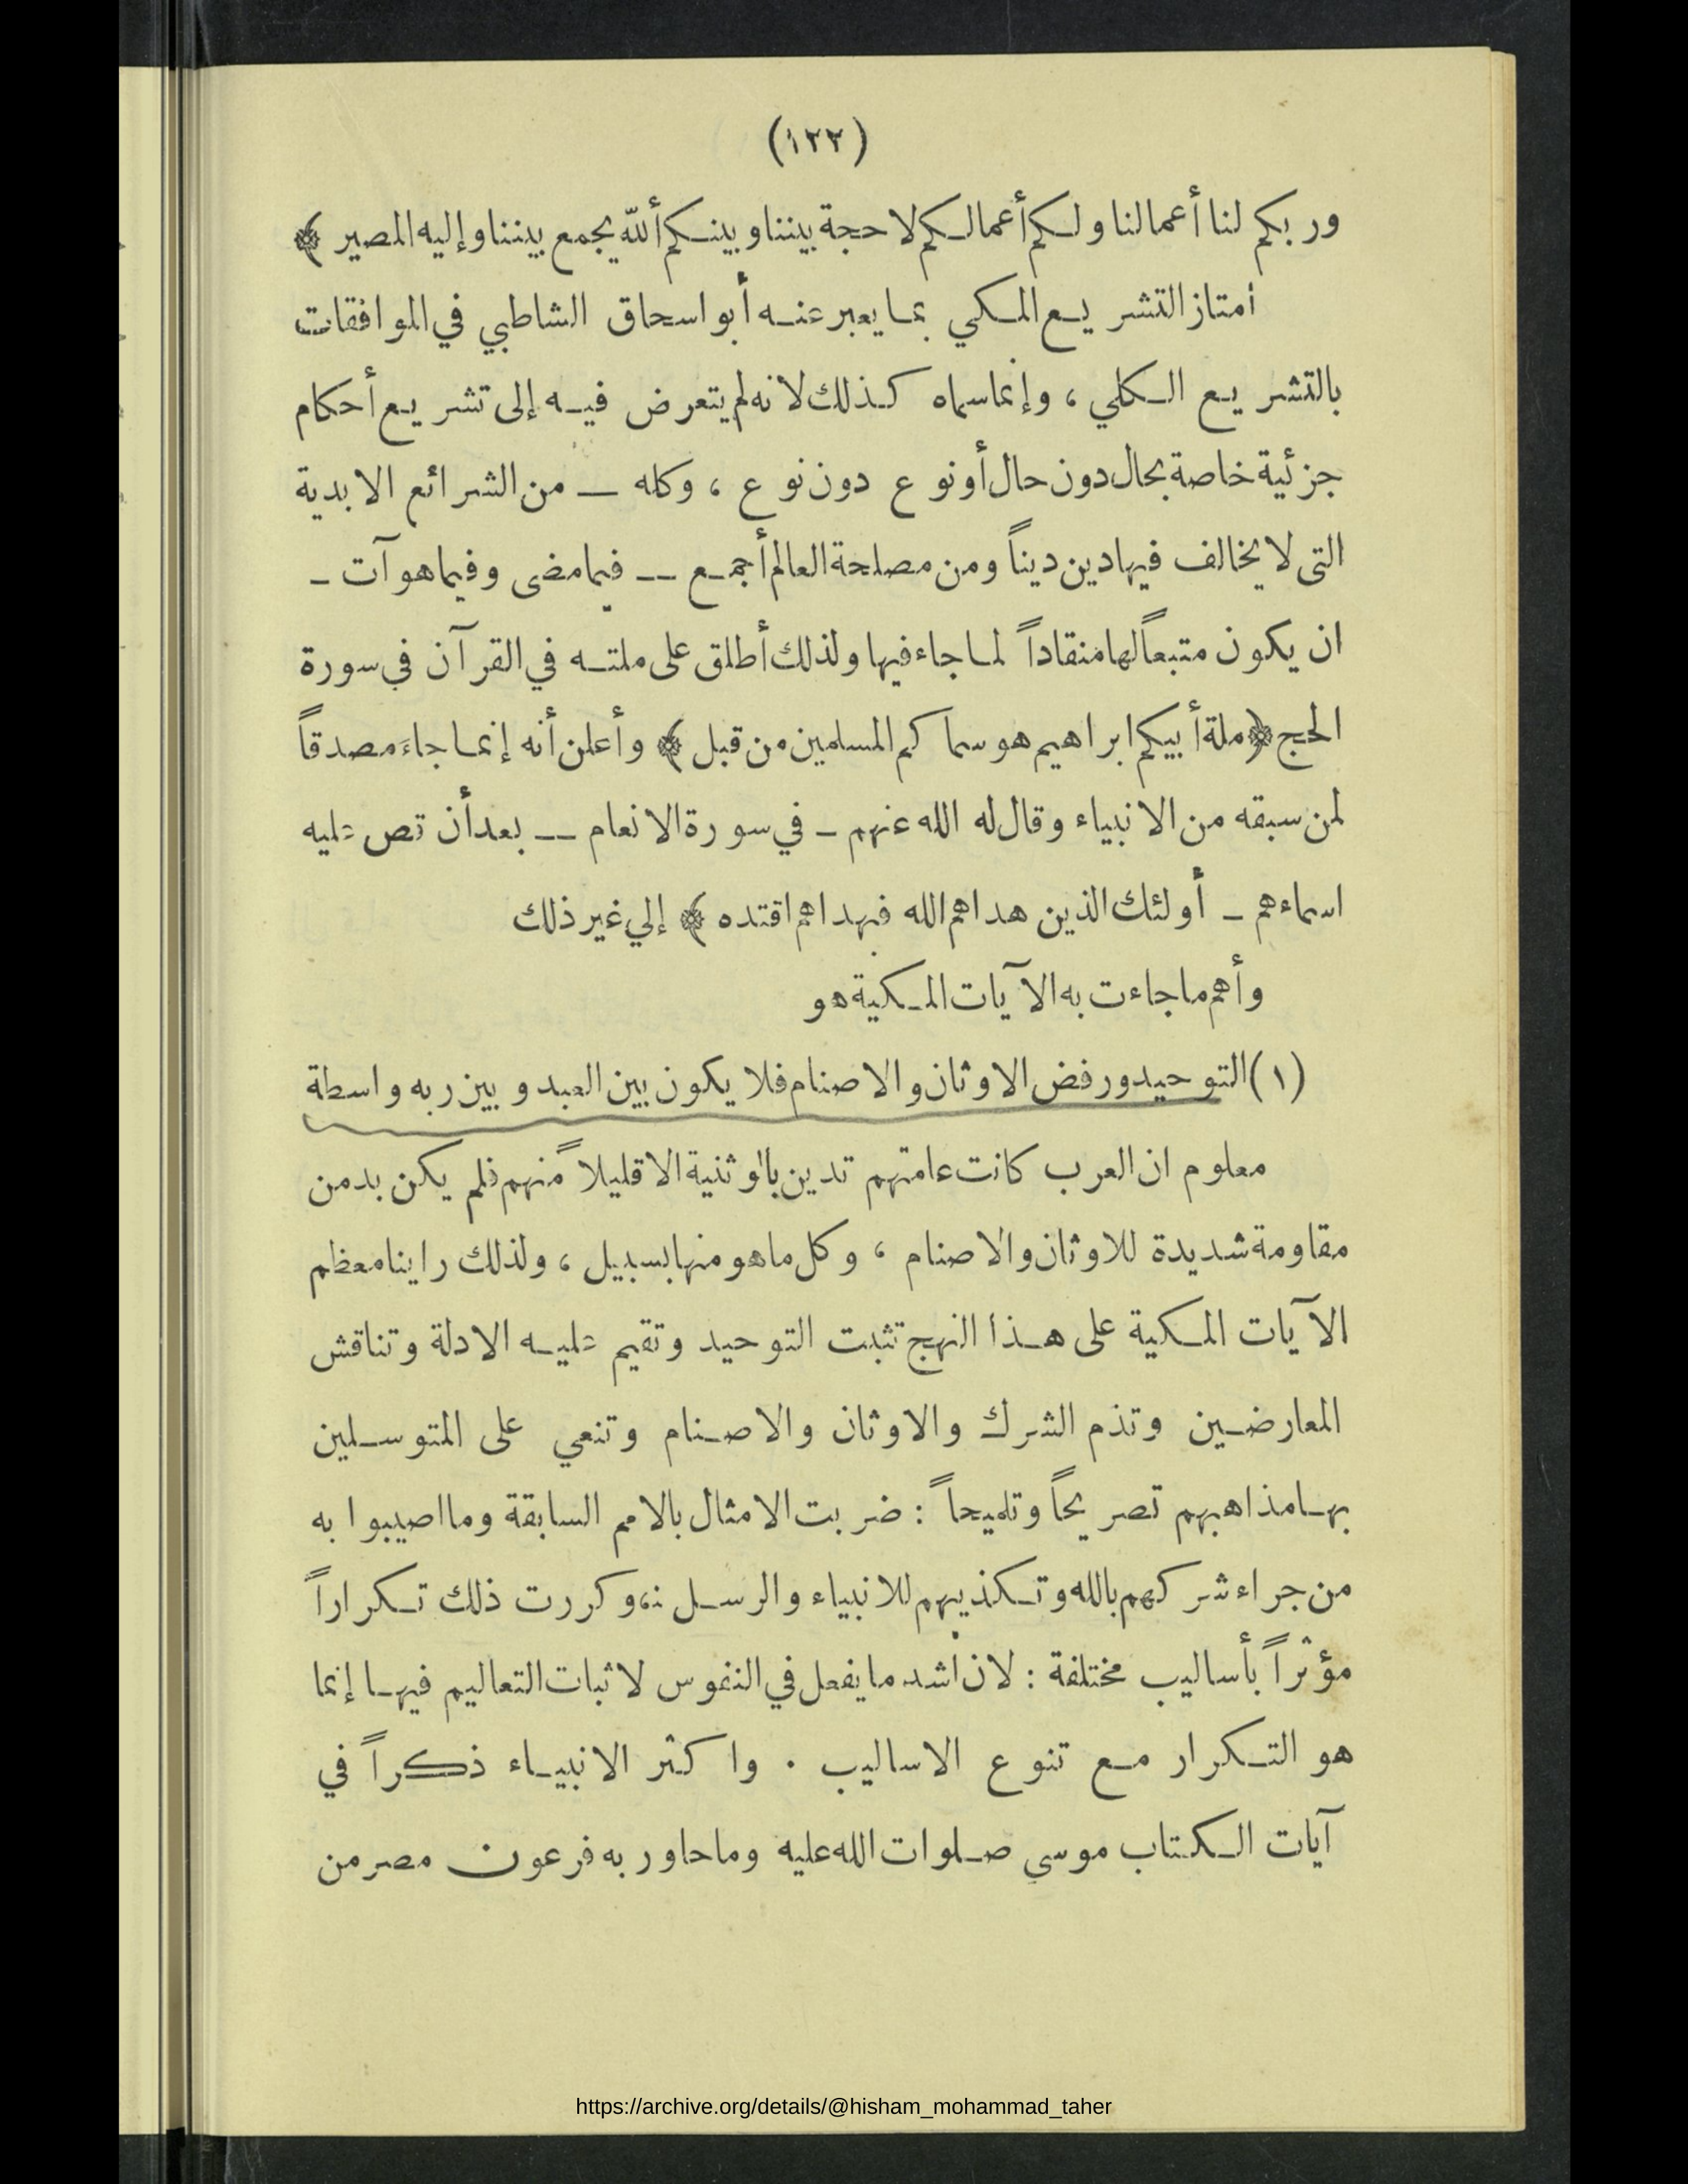 (١٢٢)
وربكم لنا أعمالنا ولكم أعمالكم لا حجة بيننا وبينكم ألله يجمع بيننا وإليه المصير ﴾
أمتاز التشريع المكي بما يعبر عنه أبو اسحاق الشاطبي في الموافقات
بالتشريع الكلي ، وإنما سماه كذلك لانه لم يتعرض فيه إلى تشريع أحكام
جزئية خاصة بحال دون حال أو نوع دون نوع ، وكله — من الشرائع الابدية
التى لا يخالف فيها دين ديناً ومن مصلحة العالم أجمع — فيما مضى وفيما هو آت –
ان يكون متبعاً لها منقاداً لما جاء فيها ولذلك أطلق على ملته في القرآن في سورة
الحج ﴿ ملة أبيكم ابراهيم هو سماكم المسلمين من قبل ﴾ وأعلن أنه إنما جاءَ مصدقاً
لمن سبقه من الانبياء وقال له الله عنهم – في سورة الانعام — بعد أن قص عليه
اسماءهم – أولئك الذين هداهم الله فبهداهم اقتده ﴾ إلي غير ذلك
وأهم ما جاءت به الآيات المكية هو
(١) التوحيد ورفض الاوثان والاصنام فلا يكون بين العبد وبين ربه واسطة
معلوم ان العرب كانت عامتهم تدين بالوثنية الا قليلاً منهم فلم يكن بد من
مقاومة شديدة للاوثان والاصنام ، وكل ما هو منها بسبيل ، ولذلك راينا معظم
الآيات المكية على هذا النهج تثبت التوحيد وتقيم عليه الادلة وتناقش
المعارضين وتذم الشرك والاوثان والاصنام وتنعي على المتوسلين
بها مذاهبهم تصريحاً وتلميحاً : ضربت الامثال بالامم السابقة وما اصيبوا به
من جراء شركهم بالله وتكذيبهم للانبياء والرسل ، وكررت ذلك تكراراً
مؤثراً بأساليب مختلفة : لان اشد ما يفعل في النفوس لاثبات التعاليم فيها إنما
هو التكرار مع تنوع الاساليب . واكثر الانبياء ذكراً في
آيات الكتاب موسي صلوات الله عليه وما حاور به فرعون مصر من
https://archive.org/details/@hisham_mohammad_taher